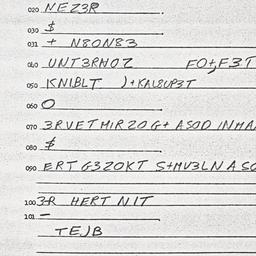 020 NEZ3R
030 $
031 + N8ON83
040 UNT3RHOZ FO+F3T
050 KNIBLT )+KAL8UP3T
060 O
070 3RVETMIRZOG+ ASOD INHA
080 $
090 ERT G3ZOKT S+HV3LNASO
100 3+R HERT NIT
101 —
TEJB